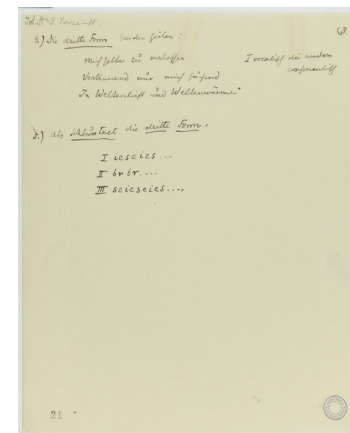 4.) Die dritte Form beider Zeilen:
mich selber zu verlassen
Vertrauend nur mich suchend
In Weltenlicht und Weltenwärme"
I vocalisch die andern
consonantisch
5.) als Schlusstact die dritte Form.
I ieseies...
II brbr....
III seieseies....
21